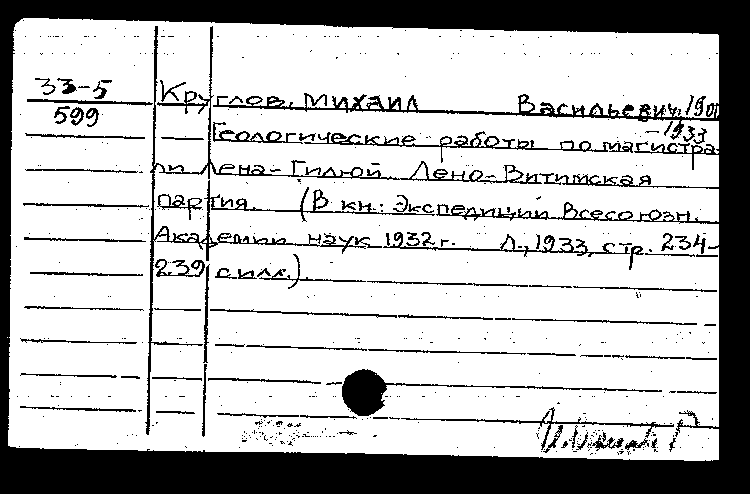 33-5
599
Круглов, Михаил Васильевич, 1900
-1933
Геологические работы по магистра-
ли Лена-Гилюй Лено-Витимская
партия. (В кн.: Экспедиции Всесоюзн.
Академии наук 1932 г. Л., 1933, стр. 234-
239 с илл.).